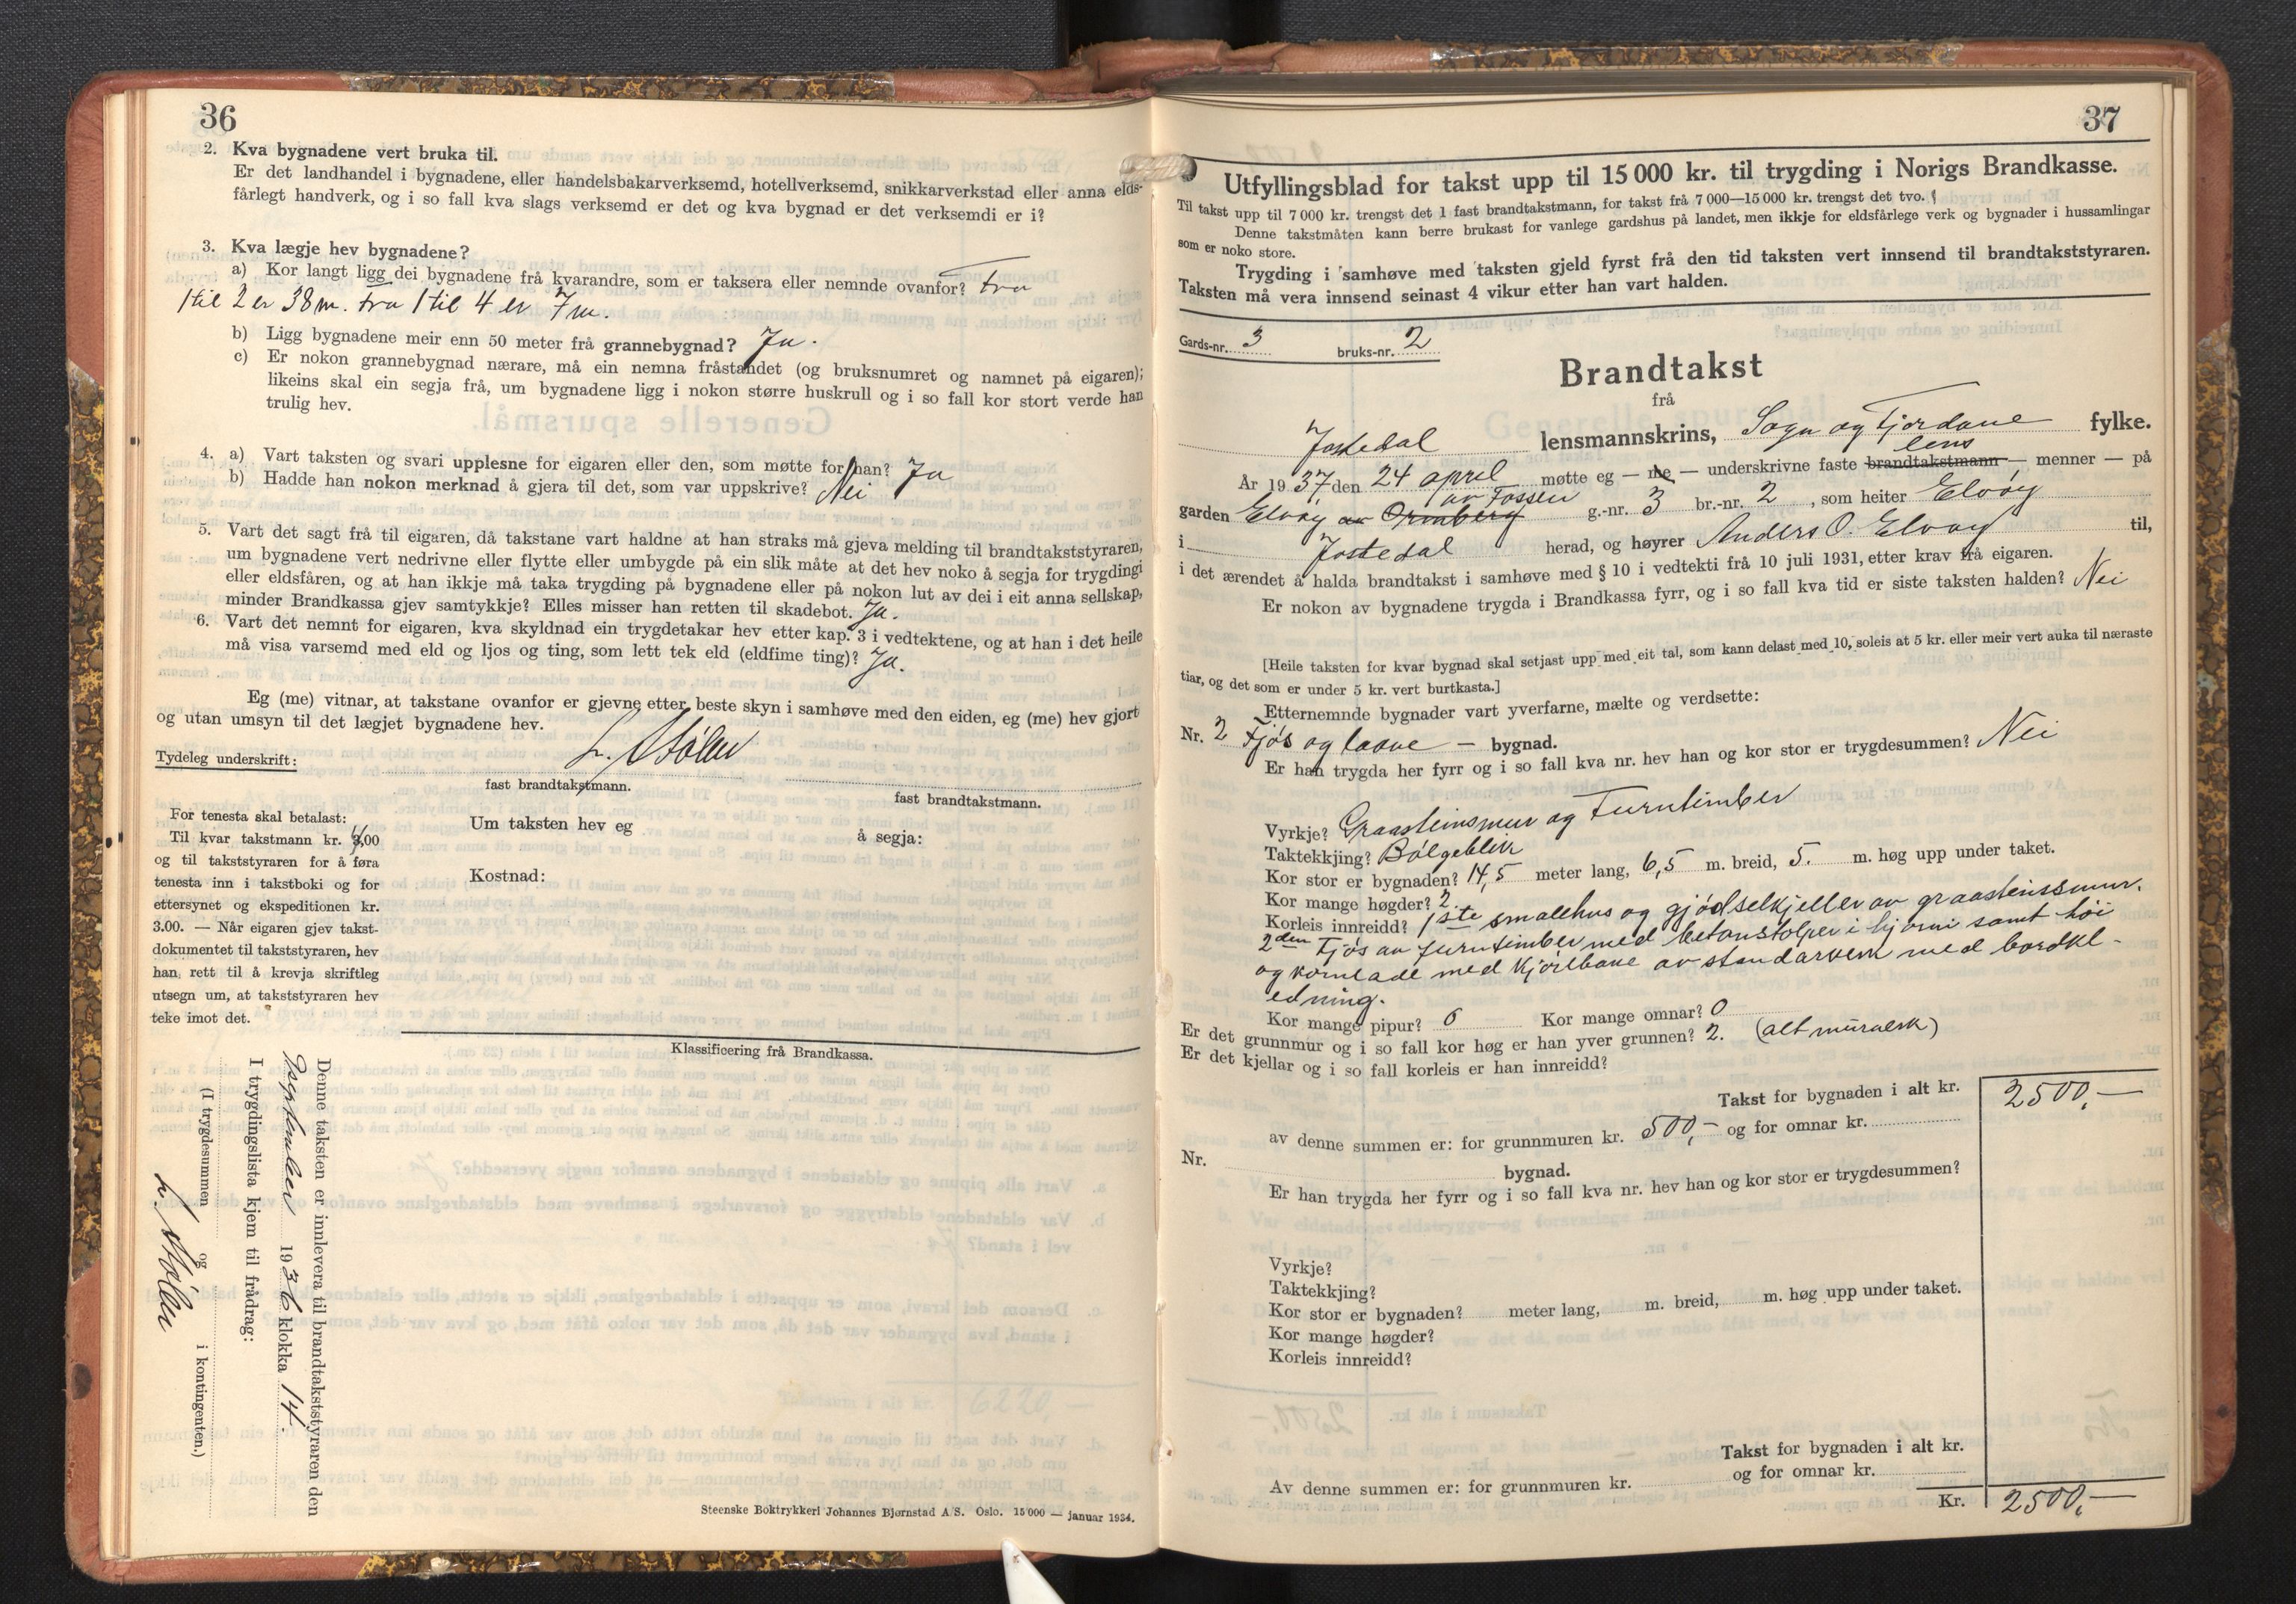 36
2. Kva bygnadene vert bruka til.
Er det landhandel i bygnadene, eller handelsbakarverksemd, hotellverksemd, snikkarverkstad eller anna elds-
fårlegt handverk, og i so fall kva slags verksemd er det og kva bygnad er det verksemdi er i?
3. Kva lægje hev bygnadene?
a) Kor langt ligg dei bygnadene frå kvarandre, som er taksera eller nemnde ovanfor? Fra
1 til 2 er 38 m. Fra 1 til 4 er 7 m.
b) Ligg bygnadene meir enn 50 meter frå grannebygnad? Ja.
c) Er nokon grannebygnad nærare, må ein nemna fråstandet (og bruksnumret og namnet på eigaren);
likeins skal ein segja frå, um bygnadene ligg i nokon større huskrull og i so fall kor stort verde han
trulig hev.
4. a) Vart taksten og svari upplesne for eigaren eller den, som møtte for han? Ja
b) Hadde han nokon merknad å gjera til det, som var uppskrive? Nei
5. Vart det sagt frå til eigaren, då takstane vart haldne at han straks må gjeva melding til brandtakststyraren,
um bygnadene vert nedrivne eller flytte eller umbygde på ein slik måte at det hev noko å segja for trygdingi
eller eldsfåren, og at han ikkje må taka trygding på bygnadene eller på nokon lut av dei i eit anna sellskap,
minder Brandkassa gjev samtykkje? Elles misser han retten til skadebot. Ja.
6. Vart det nemnt for eigaren, kva skyldnad ein trygdetakar hev etter kap. 3 i vedtektene, og at han i det heile
må visa varsemd med eld og ljos og ting, som lett tek eld (eldfime ting)? Ja.
Eg (me) vitnar, at takstane ovanfor er gjevne etter beste skyn i samhøve med den eiden, eg (me) hev gjort
og utan umsyn til det lægjet bygnadene hev.
Tydeleg underskrift: L. Stølen
fast brandtakstmann. fast brandtakstmann.
For tenesta skal betalast:
Til kvar takstmann kr. 3,00
og til takststyraren for å føra
tenesta inn i takstboki og for
ettersynet og ekspeditionen kr.
3.00. — Når eigaren gjev takst-
dokumentet til takststyraren, hev
han rett til å krevja skriftleg
utsegn um, at takststyraren hev
teke imot det.
Um taksten hev eg å segja:
Kostnad:
Klassificering frå Brandkassa.
Denne taksten er innlevera til brandtakststyraren den
19 36 klokka 14.
I trygdingslista kjem til frådrag:
(I trygdesummen og i kontingenten.)
L. Stølen
Steenske Boktrykkeri Johannes Bjørnstad A/S. Oslo. 15 000 — januar 1934.
37
Utfyllingsblad for takst upp til 15 000 kr. til trygding i Norigs Brandkasse.
Til takst upp til 7 000 kr. trengst det 1 fast brandtakstmann, for takst frå 7 000—15 000 kr. trengst det tvo.
Denne takstmåten kann berre brukast for vanlege gardshus på landet, men ikkje for eldsfårlege verk og bygnader i hussamlingar
som er noko store.
Trygding i samhøve med taksten gjeld fyrst frå den tid taksten vert innsend til brandtakststyraren.
Taksten må vera innsend seinast 4 vikur etter han vart halden.
Gards-nr. 3 bruks-nr. 2
Brandtakst
frå
Jostedal lensmannskrins, Sogn og Fjordane fylke.
lens
År 19 37 den 24 april møtte eg — me — underskrivne faste brandtakstmann — menner — på
av Fossen
garden Elvøy av Ormberg g.-nr. 3 br.-nr. 2, som heiter Elvøy
i Jostedal herad, og høyrer Anders O. Elvøy til,
i det ærendet å halda brandtakst i samhøve med § 10 i vedtekti frå 10 juli 1931, etter krav frå eigaren.
Er nokon av bygnadene trygda i Brandkassa fyrr, og i so fall kva tid er siste taksten halden? Nei
[Heile taksten for kvar bygnad skal setjast upp med eit tal, som kann delast med 10, soleis at 5 kr. eller meir vert auka til næraste
tiar, og det som er under 5 kr. vert burtkasta.]
Etternemnde bygnader vart yverfarne, mælte og verdsette:
Nr. 2 Fjøs og laave — bygnad.
Er han trygda her fyrr og i so fall kva nr. hev han og kor stor er trygdesummen? Nei
Vyrkje? Graasteinsmur og Furutimber
Taktekkjing? Bølgeblik
Kor stor er bygnaden? 14,5 meter lang, 6,5 m. breid, 5. m. høg upp under taket.
Kor mange høgder? 2.
Korleis innreidd? 1ste smalehus og gjødselkjeller av graasteinsmur.
2den Fjøs av furutimber med betonstolper i hjørni samt høi
og kornlade med kjørebane av standarverk med bordkl-
edning.
Kor mange pipur? 0 Kor mange omnar? 0
Er det grunnmur og i so fall kor høg er han yver grunnen? 2. (alt murverk)
Er det kjellar og i so fall korleis er han innreidd?
Takst for bygnaden i alt kr. 2500,—
av denne summen er: for grunnmuren kr. 500,— og for omnar kr.
Nr. bygnad.
Er han trygda her fyrr og i so fall kva nr. hev han og kor stor er trygdesummen?
Vyrkje?
Taktekkjing?
Kor stor er bygnaden? meter lang, m. breid, m. høg upp under taket.
Kor mange høgder?
Korleis innreidd?
Takst for bygnaden i alt kr.
Av denne summen er: for grunnmuren kr. og for omnar kr.
Kr. 2500,—